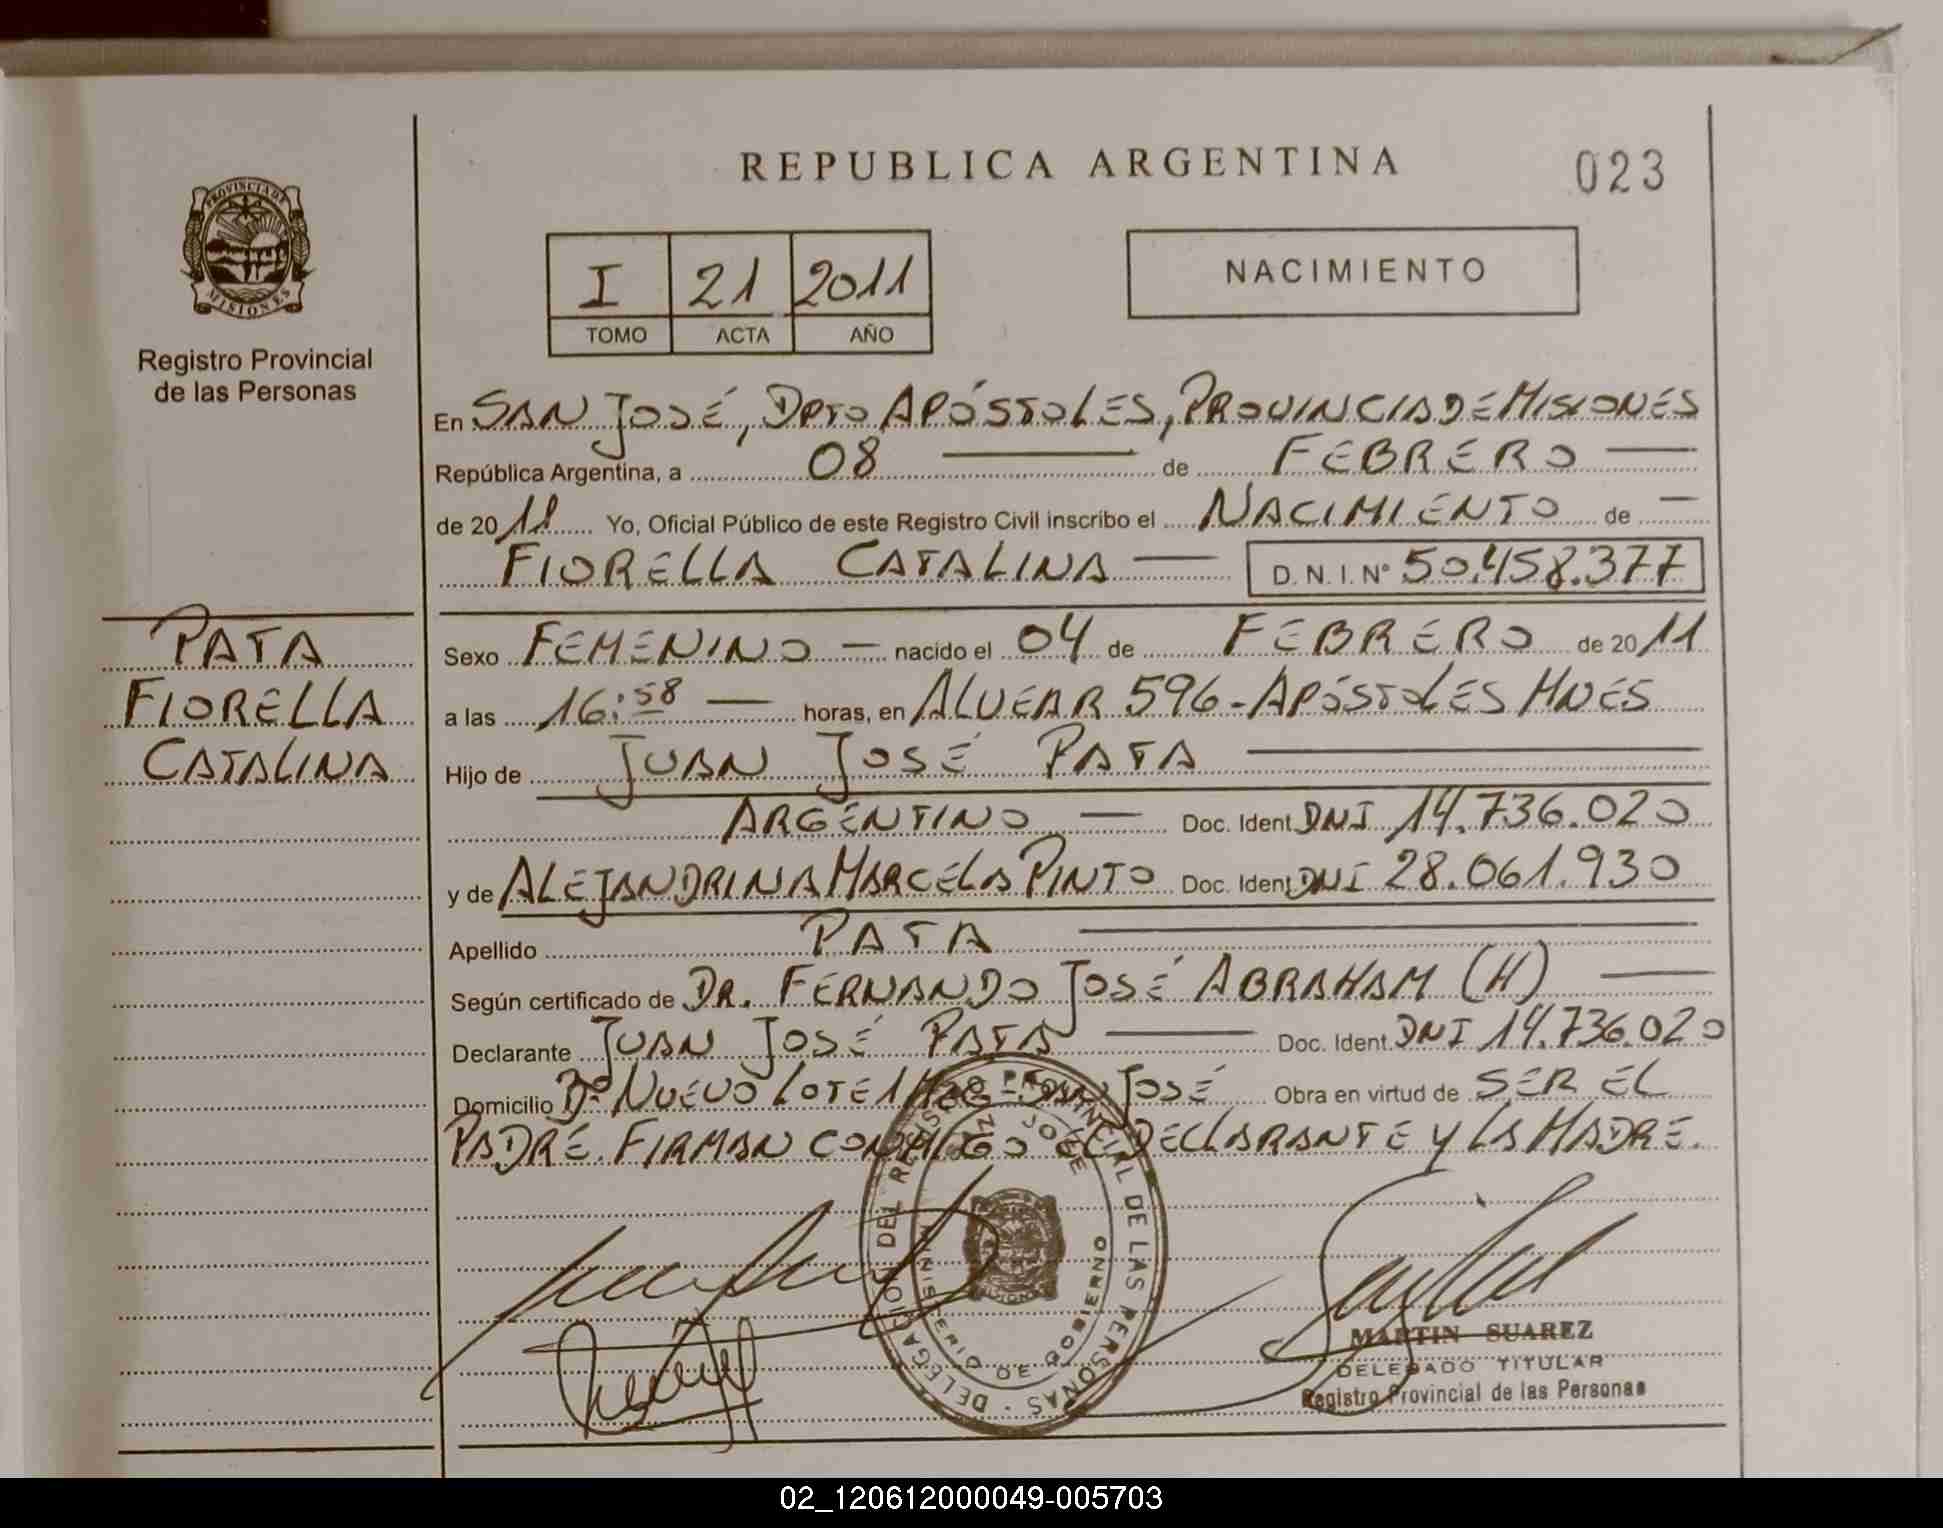 REPUBLICA ARGENTINA
023
PROVINCIA DE
MISIONES
Registro Provincial
de las Personas
I 21 2011
TOMO ACTA AÑO
NACIMIENTO
En SAN JOSÉ, DPTO APÓSTOLES, PROVINCIA DE MISIONES
República Argentina, a 08 de FEBRERO
de 2011 Yo, Oficial Público de este Registro Civil inscribo el NACIMIENTO de
FIORELLA CATALINA D. N. I. Nº 50.458.377
PATA
FIORELLA
CATALINA
Sexo FEMENINO nacido el 04 de FEBRERO de 2011
a las 16:58 horas, en ALVEAR 596 - APÓSTOLES MNES
Hijo de JUAN JOSÉ PATA
ARGENTINO Doc. Ident. DNI 14.736.020
y de ALEJANDRINA MARCELA PINTO Doc. Ident. DNI 28.061.930
Apellido PATA
Según certificado de DR. FERNANDO JOSÉ ABRAHAM (H)
Declarante JUAN JOSÉ PATA Doc. Ident. DNI 14.736.020
Domicilio Bº NUEVO LOTE JOSÉ Obra en virtud de SER EL
PADRE. FIRMAN CONMIGO EL DECLARANTE Y LA MADRE.
DELEGACION DEL REGISTRO PROVINCIAL DE LAS PERSONAS
SAN JOSE
MINISTERIO DE GOBIERNO
MARTIN SUAREZ
DELEGADO TITULAR
Registro Provincial de las Personas
02_120612000049-005703